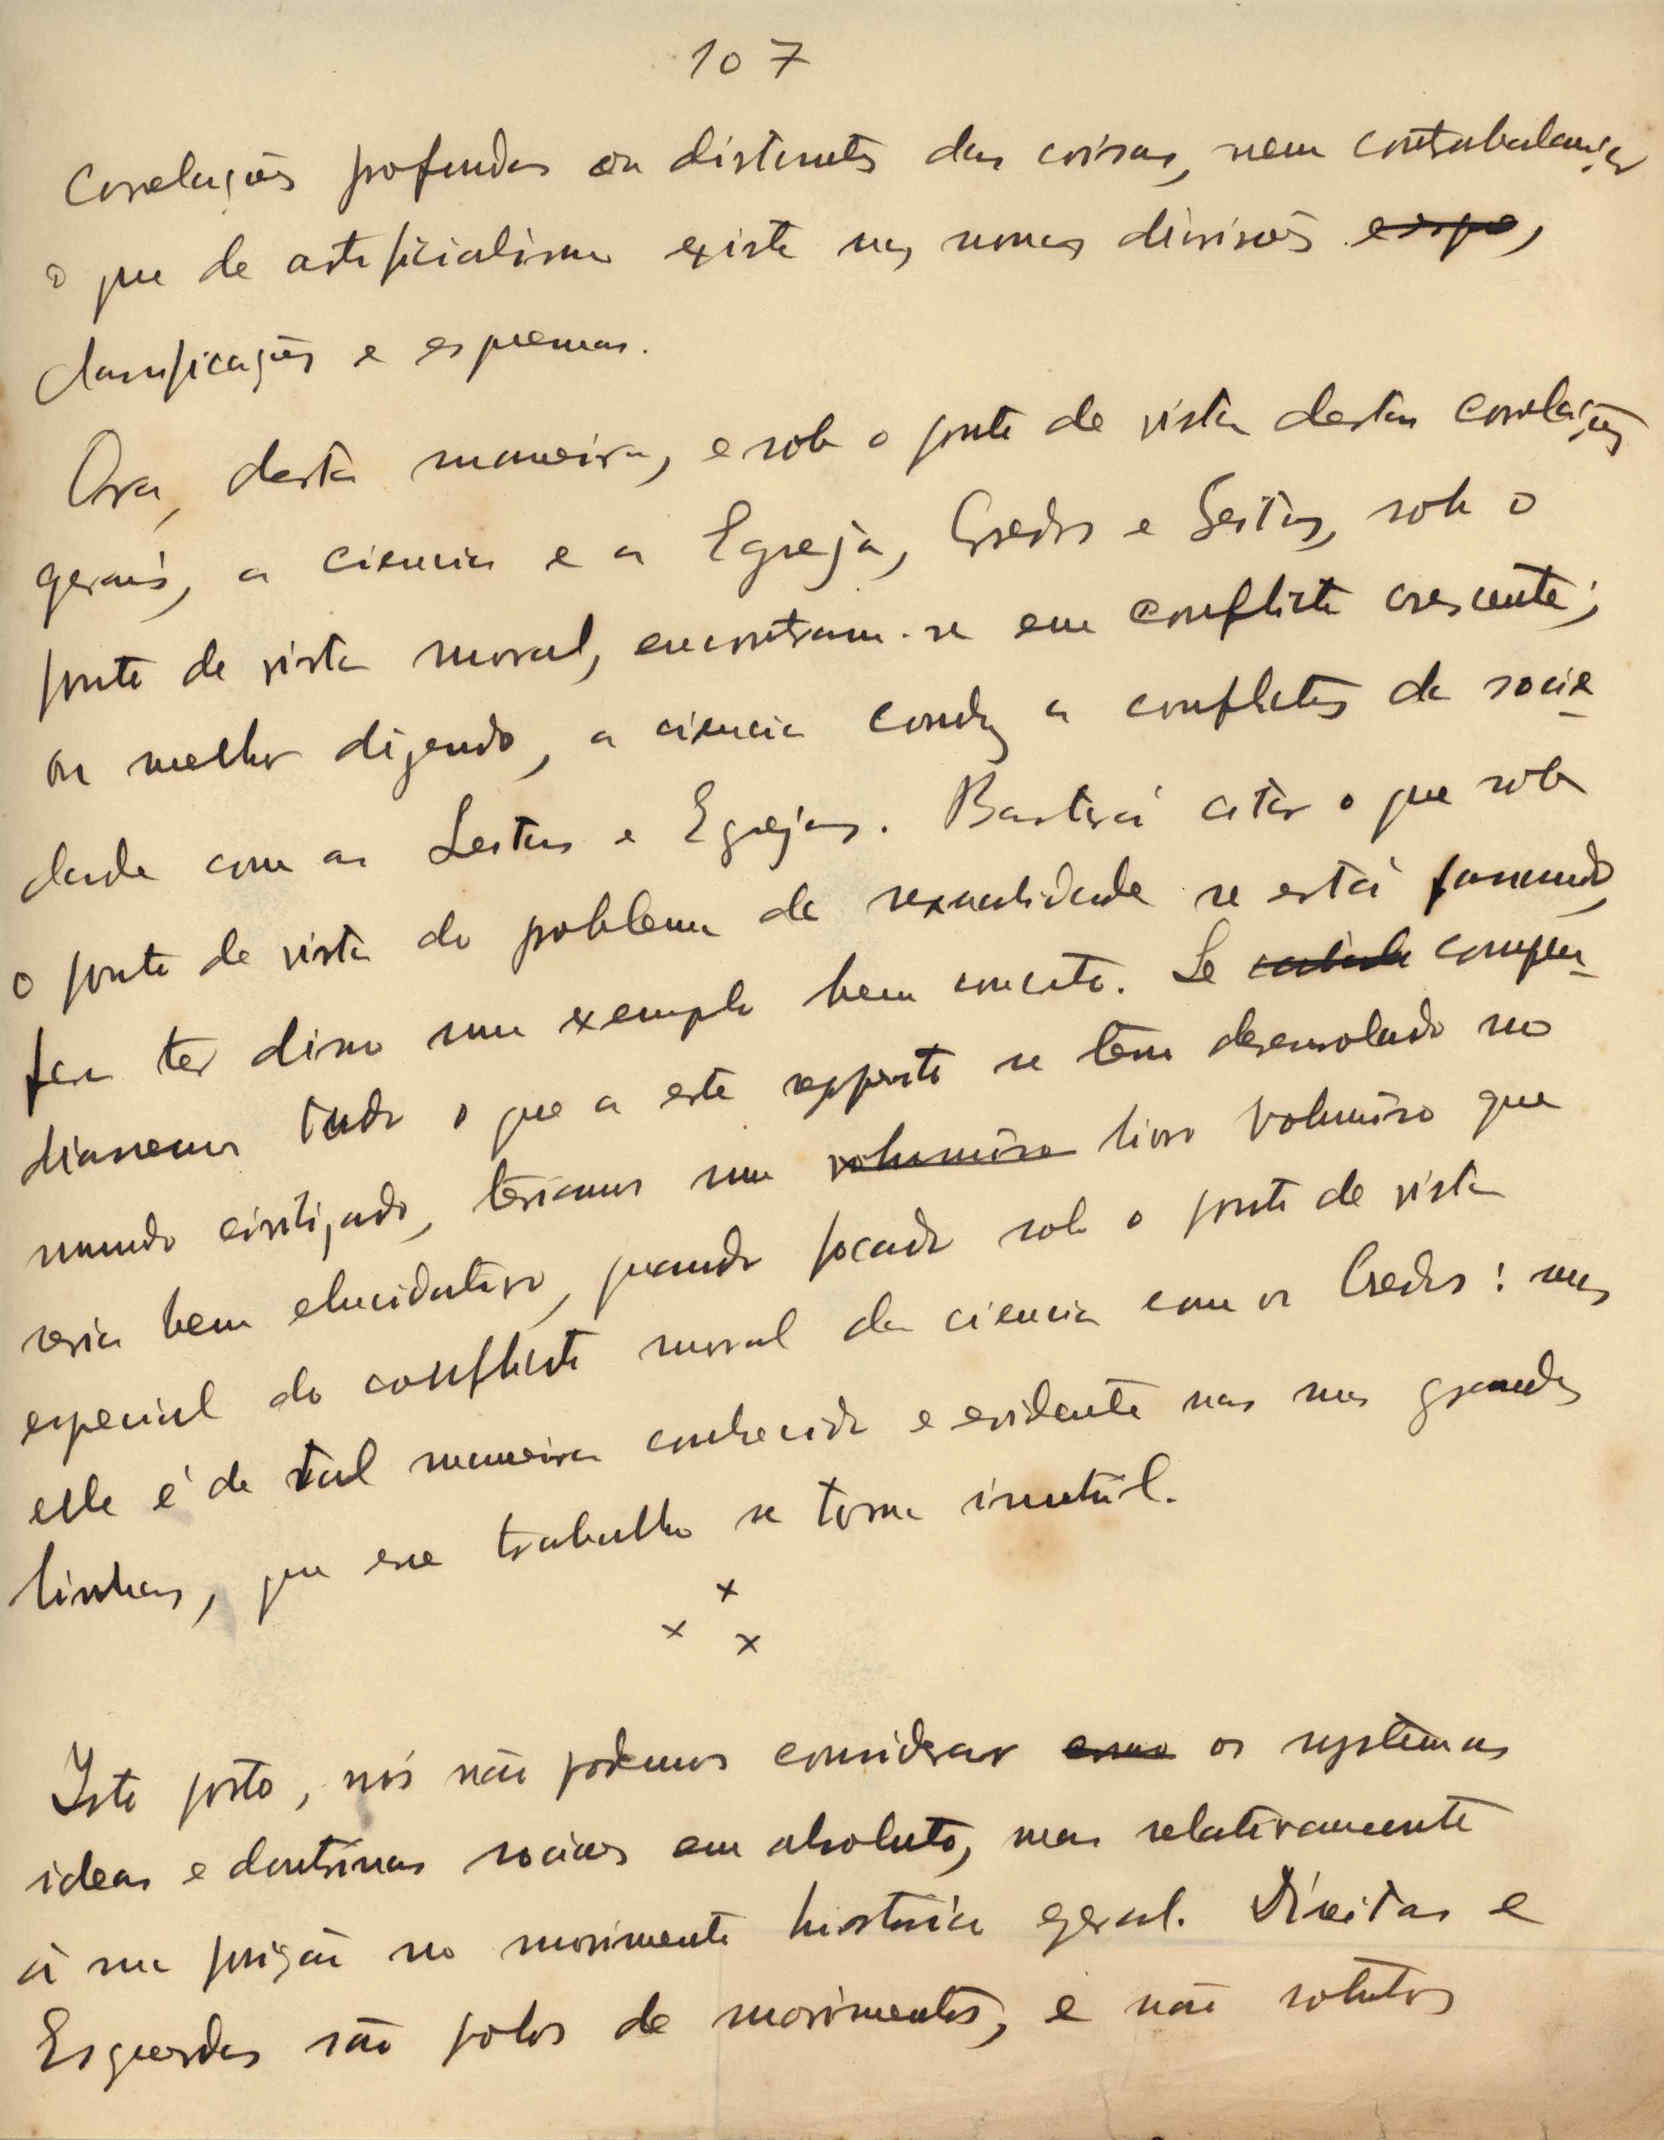 107
Correlações profundas ou distantes das coisas, nem contrabalançar
o que de artificialismo existe nas nossas divisões
classificações e esquemas.
Ora, desta maneira, e sob o ponto de vista destas correlações
geraes, a ciencia e a Egreja, Credos e Seitas, sob o
ponto de vista moral, encontram-se em conflicto crescente;
ou melhor dizendo, a ciencia conduz a conflictos da socie-
dade com as Seitas e Egrejas. Bastará citar o que sob
o ponto de vista do problema da sexualidade se está passando,
para ter disso um exemplo bem concreto. Se compen-
diassemos tudo o que a este respeito se tem desenrolado no
mundo civilizado, teriamos um volumôso livro volumôso que
seria bem elucidativo, quando focado sob o ponto de vista
especial do conflicto moral da ciencia com os Credos: mas
elle é de tal maneira conhecido e evidente nas suas grandes
linhas, que esse trabalho se torna inutil.
x
x x
Isto posto, nós não podemos considerar os systemas
ideas e doutrinas sociaes em absoluto, mas relativamente
á sua posição no movimento historico geral. Direitas e
Esquerdas são polos de movimentos, e não